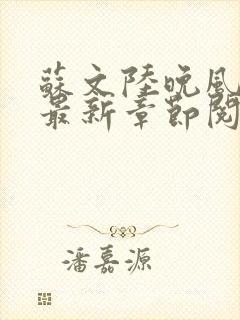 蘇文陸晚風
最新章節閱
潘嘉源